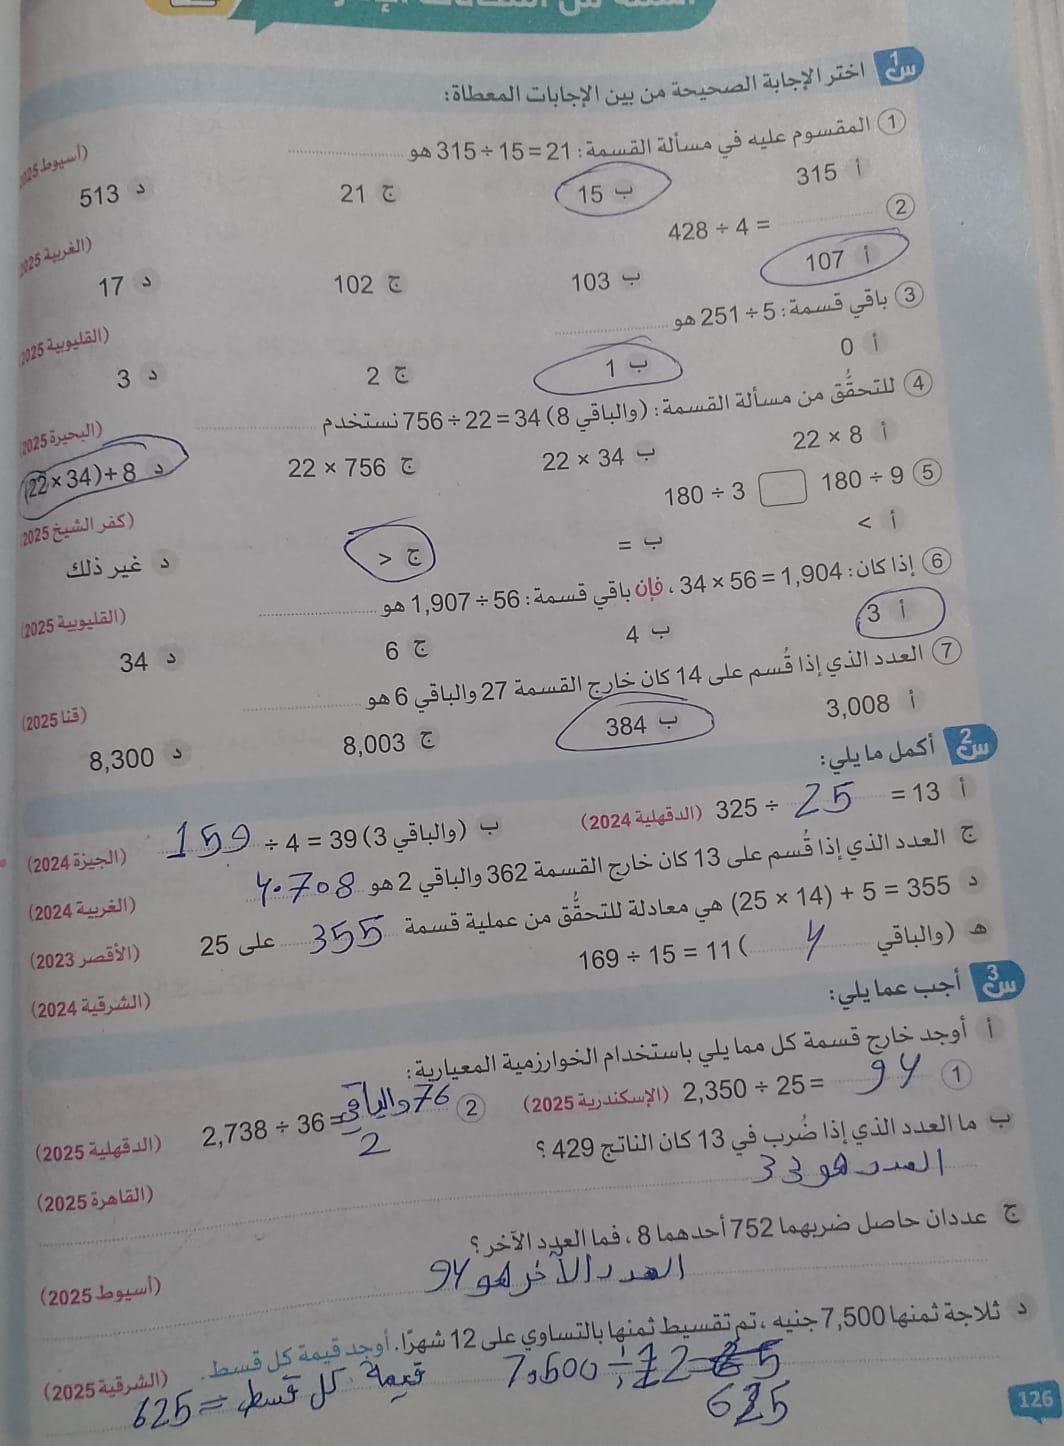 س1 اختر الإجابة الصحيحة من بين الإجابات المعطاة:
1 المقسوم عليه في مسألة القسمة: 21 = 15 ÷ 315 هو ........ (أسيوط 2025)
أ 315 ب 15 ج 21 د 513
2 428 ÷ 4 = ........ (الغربية 2025)
أ 107 ب 103 ج 102 د 17
3 باقي قسمة: 5 ÷ 251 هو ........ (القليوبية 2025)
أ 0 ب 1 ج 2 د 3
4 للتحقُّق من مسألة القسمة: (والباقي 8) 34 = 22 ÷ 756 نستخدم ........ (البحيرة 2025)
أ 22 × 8 ب 22 × 34 ج 22 × 756 د (22 × 34) + 8
5 180 ÷ 9 □ 180 ÷ 3 (كفر الشيخ 2025)
أ < ب = ج > د غير ذلك
6 إذا كان: 1,904 = 56 × 34 ، فإن باقي قسمة: 56 ÷ 1,907 هو ........ (القليوبية 2025)
أ 3 ب 4 ج 6 د 34
7 العدد الذي إذا قُسم على 14 كان خارج القسمة 27 والباقي 6 هو ........ (قنا 2025)
أ 3,008 ب 384 ج 8,003 د 8,300
س2 أكمل ما يلي:
أ 325 ÷ 25 = 13 (الدقهلية 2024) ب 159 ÷ 4 = 39 (والباقي 3) (الجيزة 2024)
ج العدد الذي إذا قُسم على 13 كان خارج القسمة 362 والباقي 2 هو 4.708 (الغربية 2024)
د (25 × 14) + 5 = 355 هي معادلة للتحقُّق من عملية قسمة 355 على 25 (الأقصر 2023)
هـ (والباقي 4) 169 ÷ 15 = 11 (الشرقية 2024)
س3 أجب عما يلي:
أ أوجد خارج قسمة كل مما يلي باستخدام الخوارزمية المعيارية:
1 2,350 ÷ 25 = 94 (الإسكندرية 2025) 2 2,738 ÷ 36 = 76 والباقي 2 (الدقهلية 2025)
ب ما العدد الذي إذا ضُرب في 13 كان الناتج 429 ؟ (القاهرة 2025)
العدد هو 33
ج عددان حاصل ضربهما 752 أحدهما 8 ، فما العدد الآخر؟ (أسيوط 2025)
العدد الآخر هو 94
د ثلاجة ثمنها 7,500 جنيه، تم تقسيط ثمنها بالتساوي على 12 شهرًا. أوجد قيمة كل قسط. (الشرقية 2025)
7.500 ÷ 12 = 625
قيمة كل قسط = 625
126